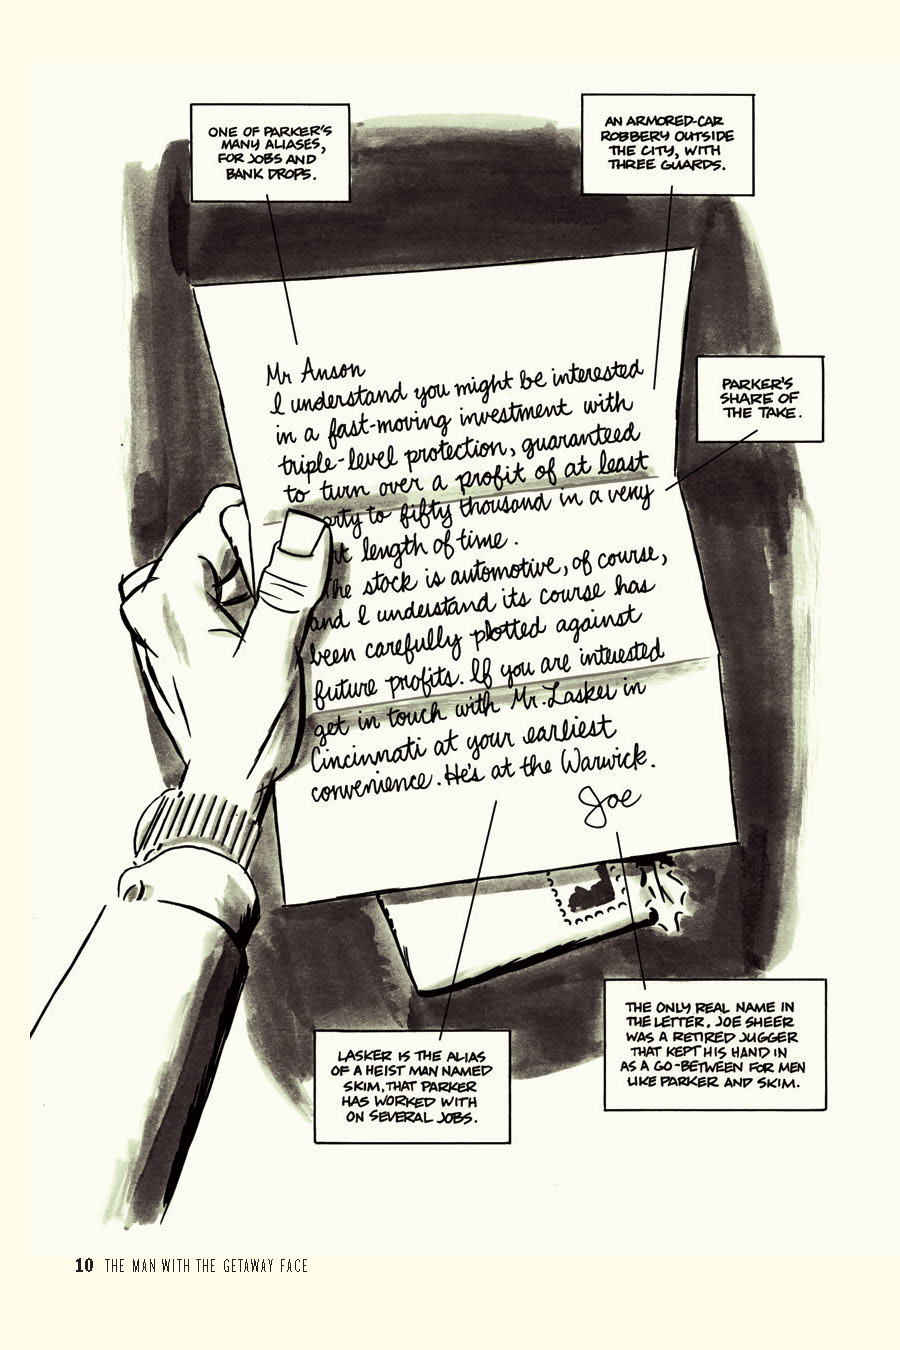 ONE OF PARKER'S
MANY ALIASES,
FOR JOBS AND
BANK DROPS.
AN ARMORED-CAR
ROBBERY OUTSIDE
THE CITY, WITH
THREE GUARDS.
PARKER'S
SHARE OF
THE TAKE.
Mr Anson
I understand you might be interested
in a fast-moving investment with
triple-level protection, guaranteed
to turn over a profit of at least
orty to fifty thousand in a very
length of time.
The stock is automotive, of course,
and I understand its course has
been carefully plotted against
future profits. If you are interested
get in touch with Mr. Lasker in
Cincinnati at your earliest
convenience. He's at the Warwick.
Joe
LASKER IS THE ALIAS
OF A HEIST MAN NAMED
SKIM, THAT PARKER
HAS WORKED WITH
ON SEVERAL JOBS.
THE ONLY REAL NAME IN
THE LETTER. JOE SHEER
WAS A RETIRED JUGGER
THAT KEPT HIS HAND IN
AS A GO-BETWEEN FOR MEN
LIKE PARKER AND SKIM.
10 THE MAN WITH THE GETAWAY FACE